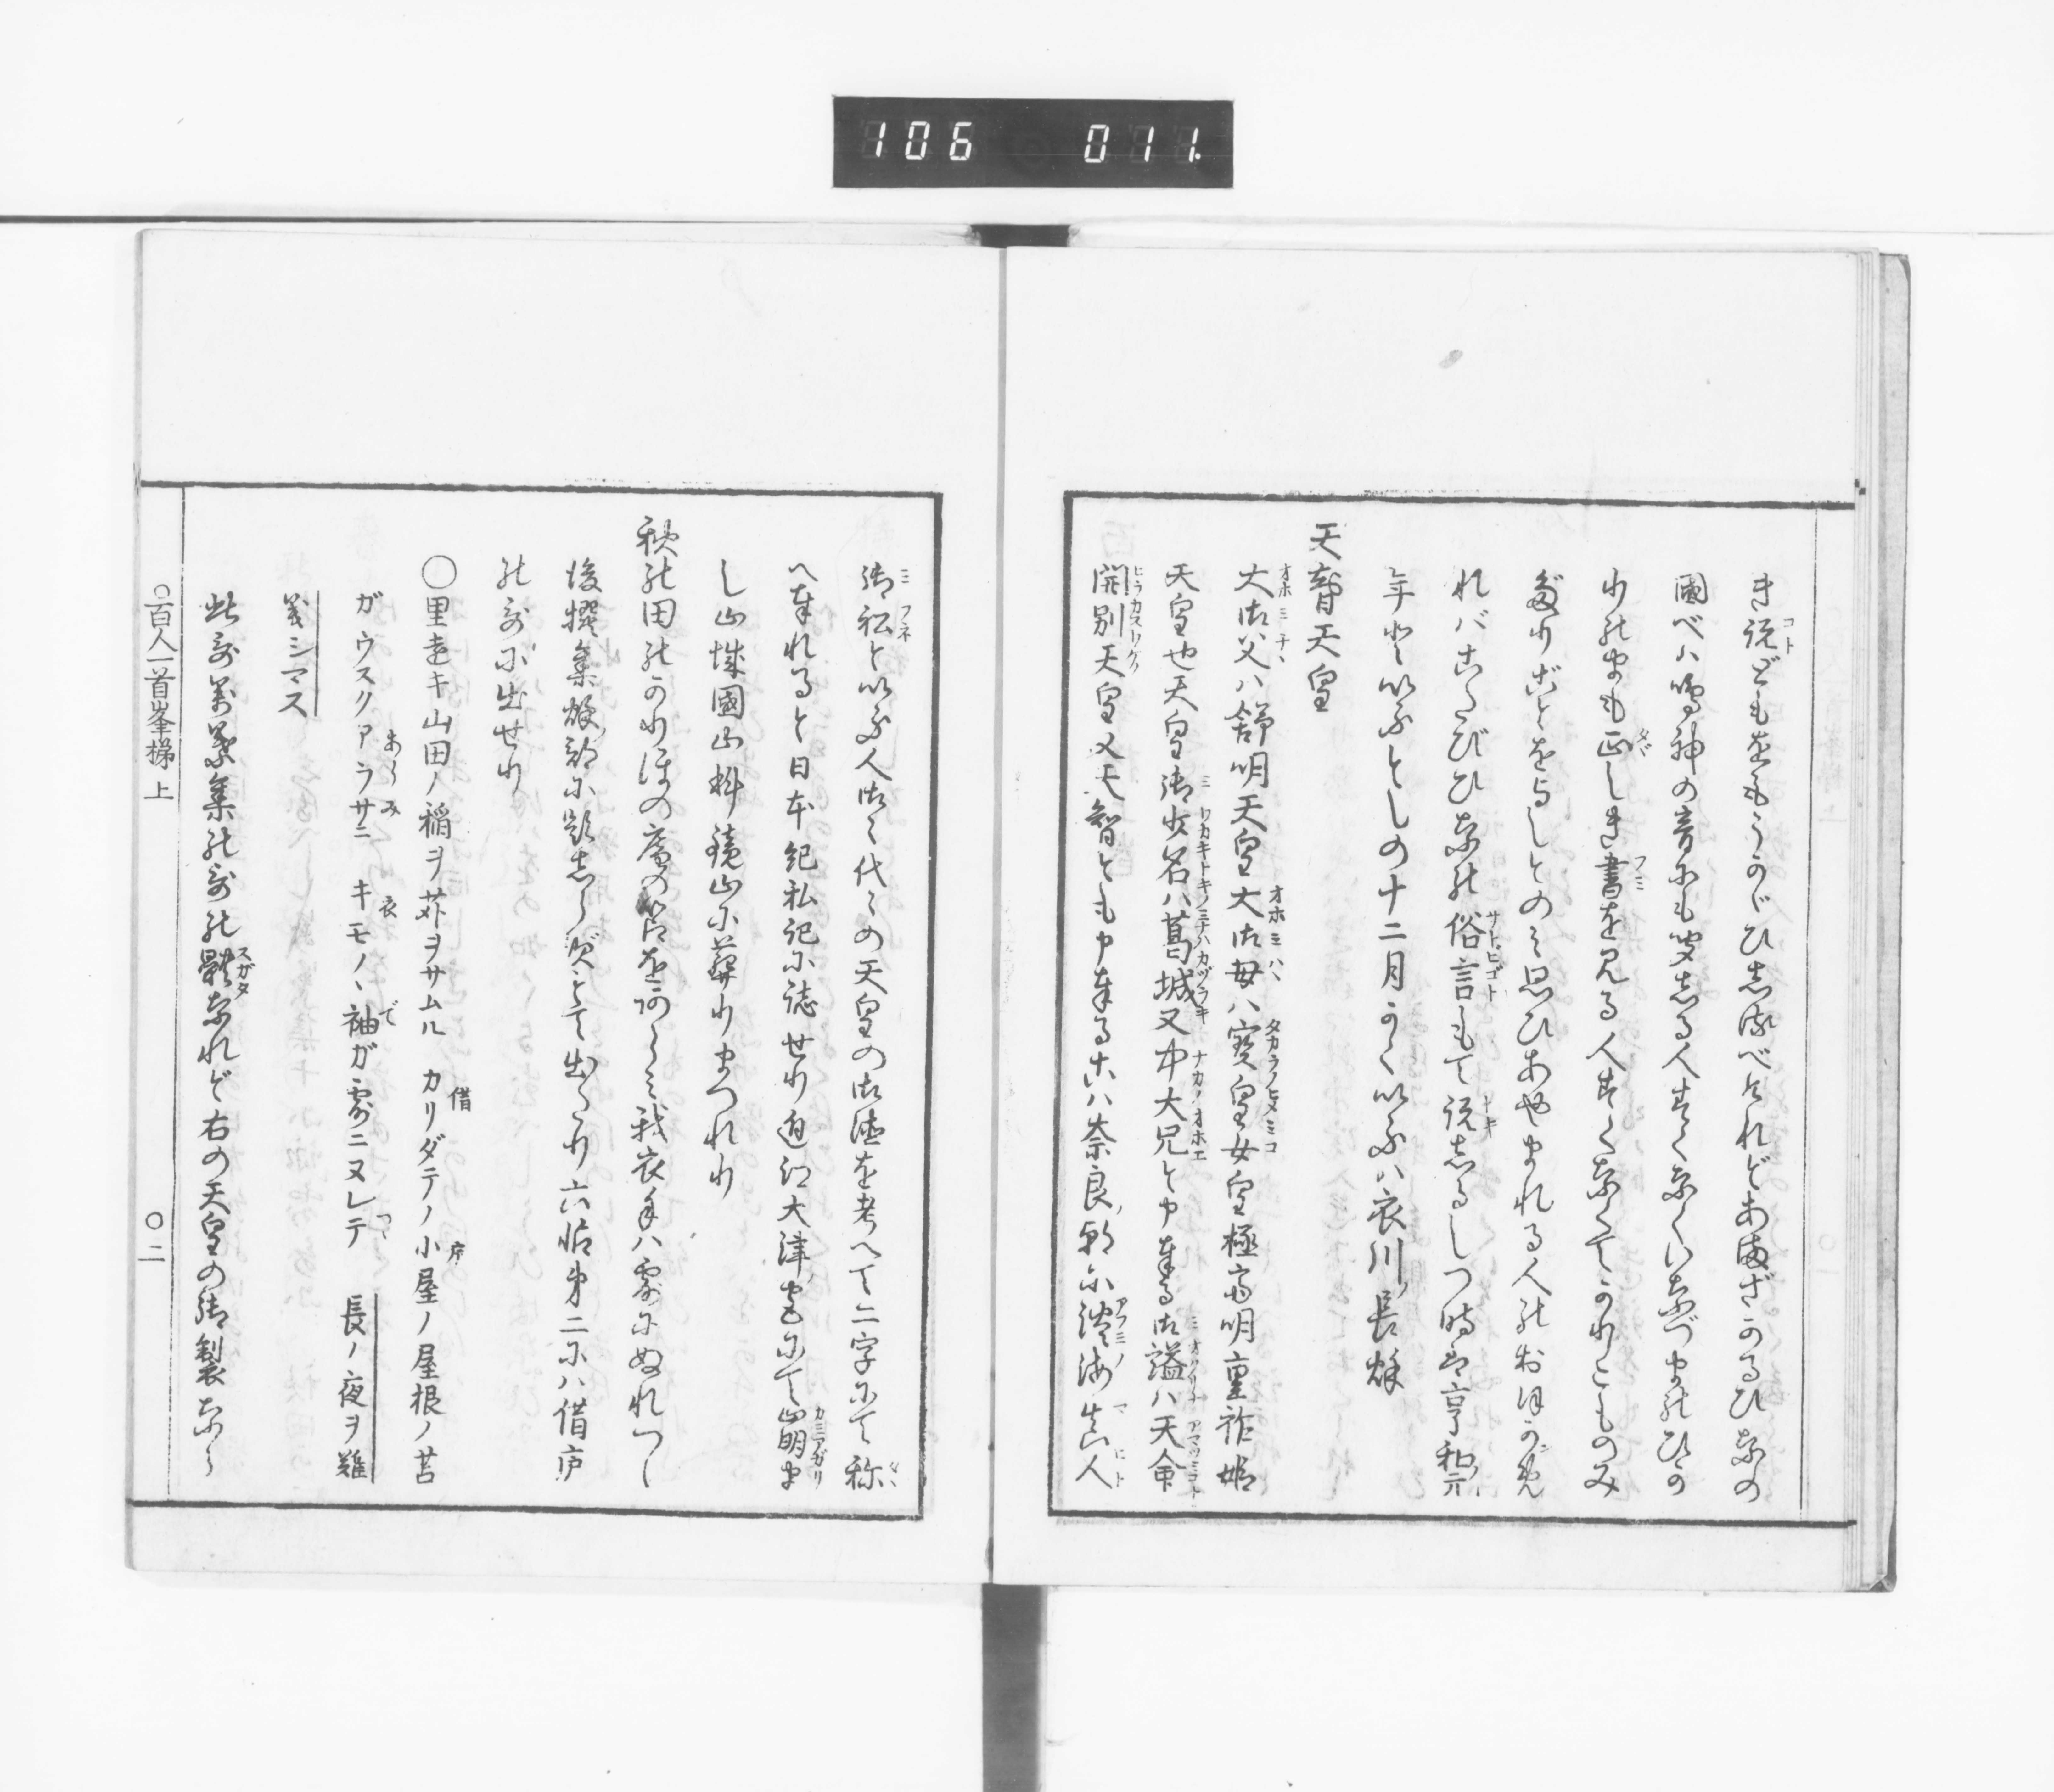 106 011
き説どもをもうかゞひ志るべけれどあまざかるひなの
國べハ鳴神の音にも聞志る人すくなくいなづまのひか
りのまも正しき書を見る人すくなくてかりこものみ
だりごとを与しとのみ思ひあやまれる人のおほかん
れバこたびひなの俗言もて説志るしつ時は享和元
年といふとしの十二月かくいふハ衣川長秋
天智天皇
大御父ハ舒明天皇大御母ハ寳皇女皇極斉明重祚姫
天皇也天皇御少名ハ葛城又中大兄と申奉る御謚ハ天命
開別天皇又天智とも申奉るこハ奈良ノ朝に淡海真人
御船といふ人御々代々の天皇の御徳を考へて二字にて称
へ奉れると日本紀私記に誌せり近江大津ノ宮にて崩ま
し山城國山科鏡山に葬りまつれり
秋の田のかりほの庵の苫をあらみ我衣手ハ露にぬれつゝ
後撰集秋ノ部に題志らずとて出たり六帖第二にハ借庐
の歌に出せり
○里遠キ山田ノ稲ヲ苅ヲサムル カリダテノ小屋ノ屋根ノ苫
ガウスクアラサニ キモノヽ袖ガ露ニヌレテ 長ノ夜ヲ難
義シマス
此歌萬葉集の歌の躰なれど右の天皇の御製なら
○百人一首峯梯 上 ○二